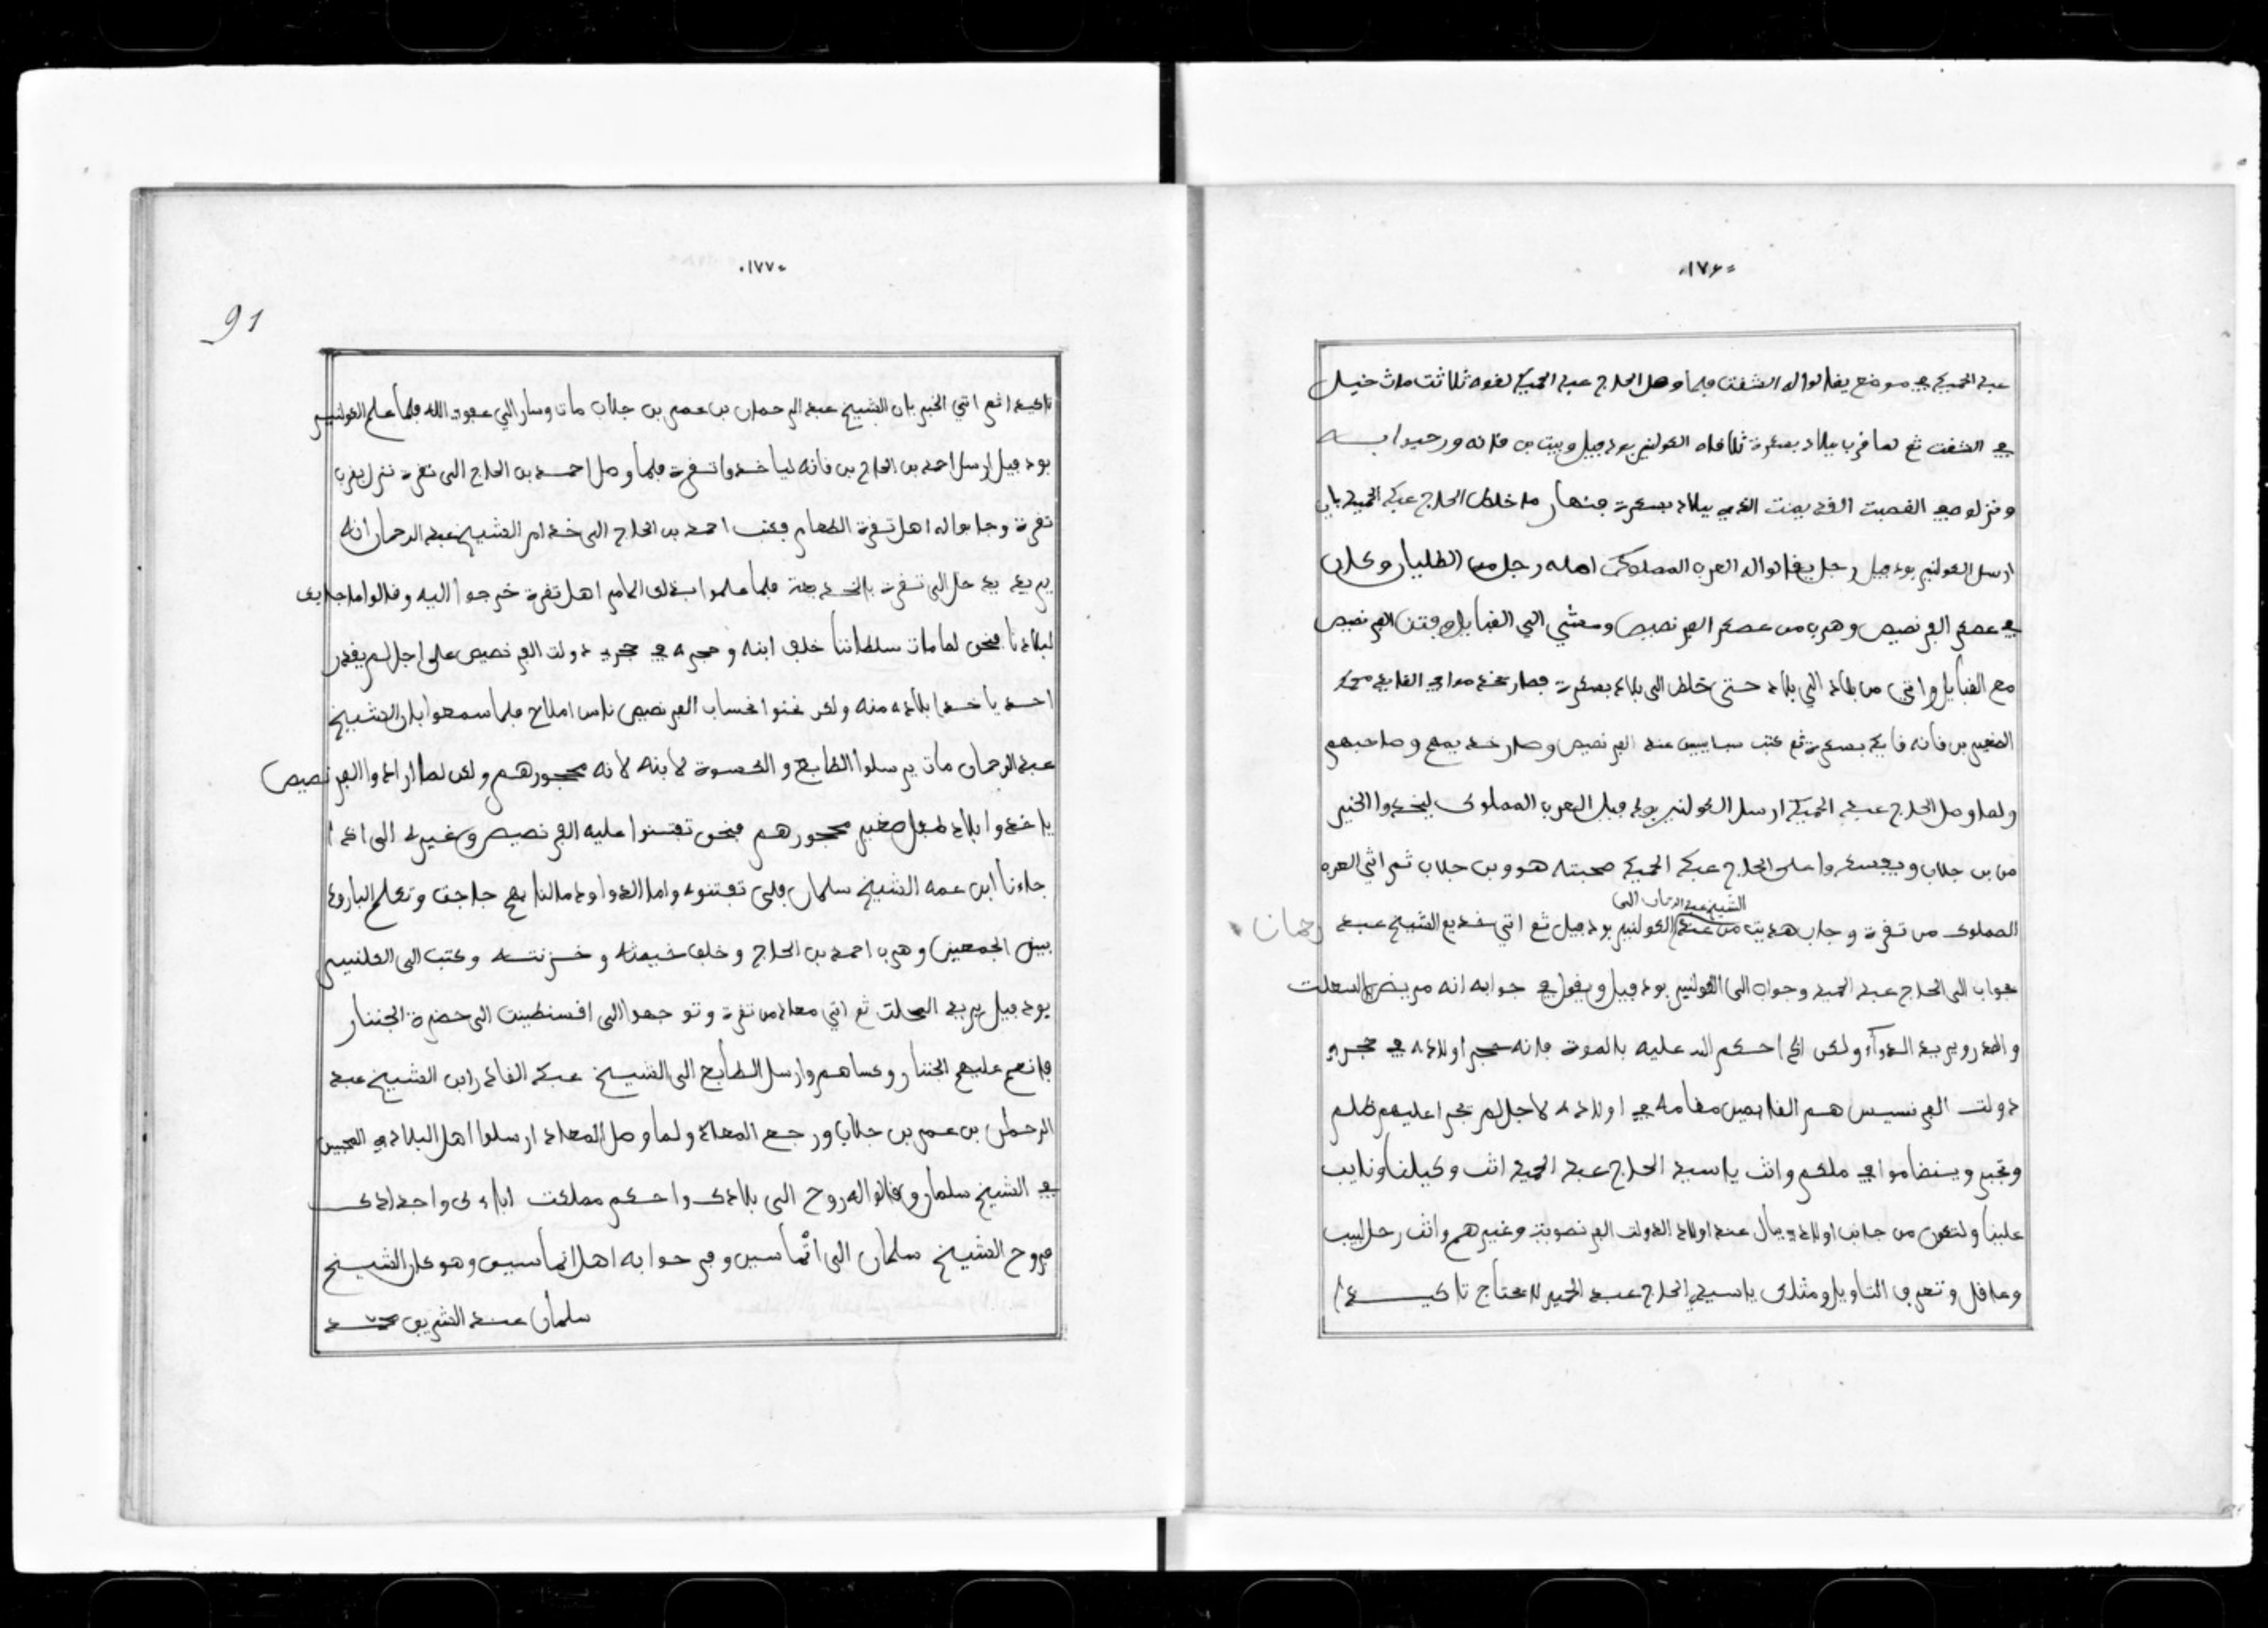 ١٧٦
عبد الحميد في موضع يقالوا له الشقت فلما وصل الحاج عبد الحميد لقوه ثلاثت مات خيل
في الشقت ثم لما قرب بلاد بسكرة تلاقاه الكولنير بودفيل وبيت بن قانه ورحبوا به
ونزلوه في القصبت القديمت الذي ببلاد بسكرة فنهار ما خلط الحاج عبد الحميد بان
ارسل الكولنير بودفيل رجل يقالوا له العرب المملوك اصله رجل من الطليان وكان
في عسكر الفرنصيص وهرب من عسكر الفرنصيص ومشى الى القبايل وفتن الفرنصيص
مع القبايل واتى من بلاد الي بلاد حتى خلط الى بلاد بسكرة فصار عند محمد
الصغير بن قانه قايد بسكرة ثم كتب سبايس عند الفرنصيص وصار خديمهم وصاحبهم
ولما وصل الحاج عبد الحميد ارسل الكولنير بودفيل العرب المملوك ليخذوا الخبر
من بن جلاب ويجسسوا على الحاج عبد الحميد صحبته هو وبن جلاب ثم اتى العرب
الشيخ عبد الرحمان الى
المملوك من تقرة وجاب هديت من عند الكولنير بودفيل ثم اتى خديم الشيخ عبد رحمان
جواب الى الحاج عبد الحميد وجواب الى الكولنير بودفيل ويقول في جوابه انه مريض بالسعلت
والصدر ويريد الدواء ولكن اذا حكم الله عليه بالموت فانه حجر اولاده في حجر
دولت الفرنسيس هم القايمين مقامه في اولاده لاجل لم تجرا عليهم ظلم
وتجبر وينضاموا في ملكهم وانت ياسيد الحاج عبد الحميد انت وكيلنا ونايب
علينا ولتكون من جانب اولادي بال عند اولاد الدولت الفرنصوية وغيرهم وانت رجل لبيب
وعاقل وتعرف التاويل ومثلك ياسيد الحاج عبد الحميد لا يحتاج تاكيدا
١٧٧
91
تاكيدا ثم اتي الخبر بان الشيخ عبد الرحمان بن عمر بن جلاب مات وسار الي عفو الله فلما علم الكولنير
بودفيل ارسل احمد بن الحاج بن قانه لياخذوا تقرة فلما وصل احمد بن الحاج الى تقرة نزل بقرب
تقرة وجابوا له اهل تقرة الطعام فكتب احمد بن الحاج الى خدام الشيخ عبد الرحمان انه
يريد يدخل الى تقرة بالخديعة فلما علموا بذلك الكلام اهل تقرة خرجوا اليه وقالوا ما جابك
لبلادنا فنحن لما مات سلطاننا خلف ابنه وحجره في حجر دولت الفرنصيص على اجل لم يقدر
احد ياخذ ابلاده منه ولكن كنوا نحساب الفرنصيص ناس املاح فلما سمعوا بان الشيخ
عبد الرحمان مات يرسلوا الطابع والكسوة لابنه لانه محجورهم ولكن لما ارادوا الفرنصيص
ياخذوا ابلاد طفل صغير محجورهم فنحن تفتنوا عليه الفرنصيص وغيره الى اذا
جاءنا ابن عمه الشيخ سلمان فلن تفتنوه واما الذواوده مالنا بهم حاجة وتكلم البارود
بين الجمعين وهرب احمد بن الحاج وخلف خيمته وخزنته وكتب الى الكلنير
بودفيل يريد المحلة ثم اتي معاد من تقرة وتوجهوا الى اقسنطينت الى حضرة الجننار
فانعم عليهم الجننار وكساهم وارسل الطابع الى الشيخ عبد القادر ابن الشيخ عبد
الرحمان بن عمر بن جلاب ورجع المعاد ولما وصل المعاد ارسلوا اهل البلاد
في الشيخ سلمان وقالوا له روح الى بلادك واحكم مملكت اباءك واجدادك
فروح الشيخ سلمان الى اتماسين وفرحوا به اهل اتماسين وهو كان الشيخ
سلمان عند الشريف محمد